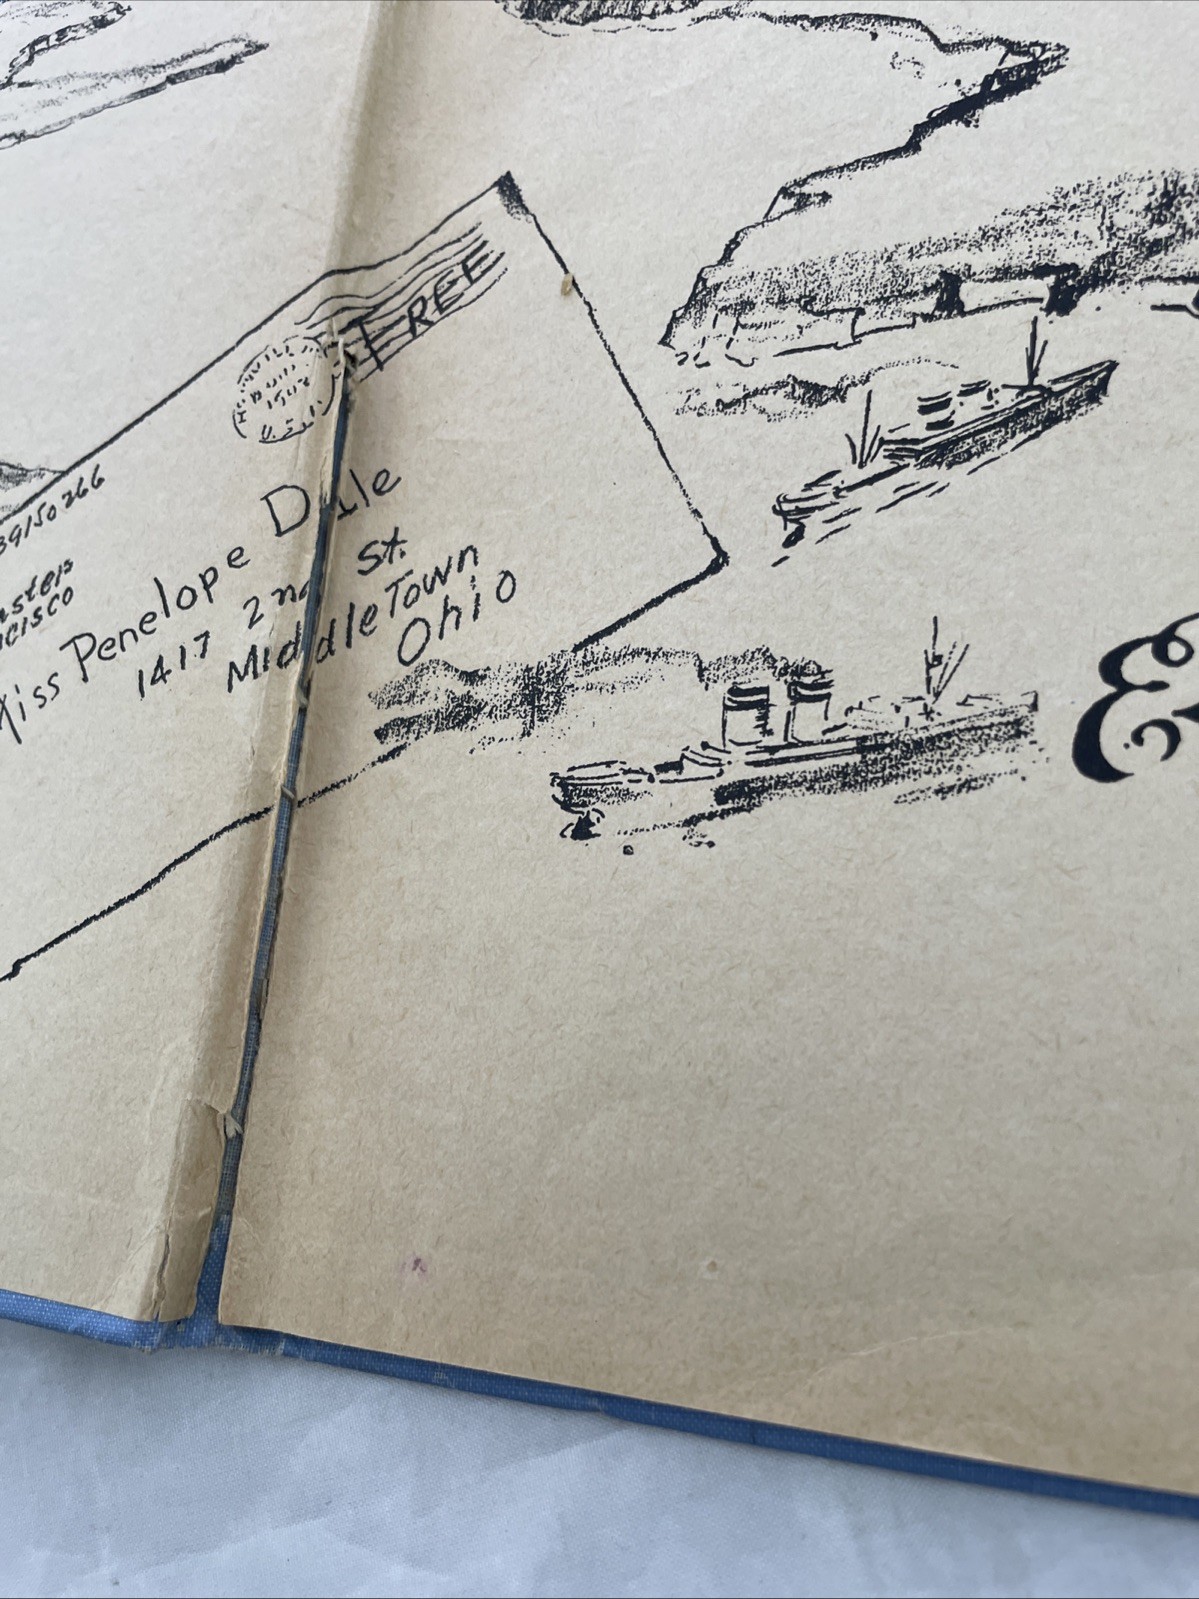 FREE
U.S.
39150266
Miss Penelope Dale
1417 2nd St.
MiddleTown
Ohio